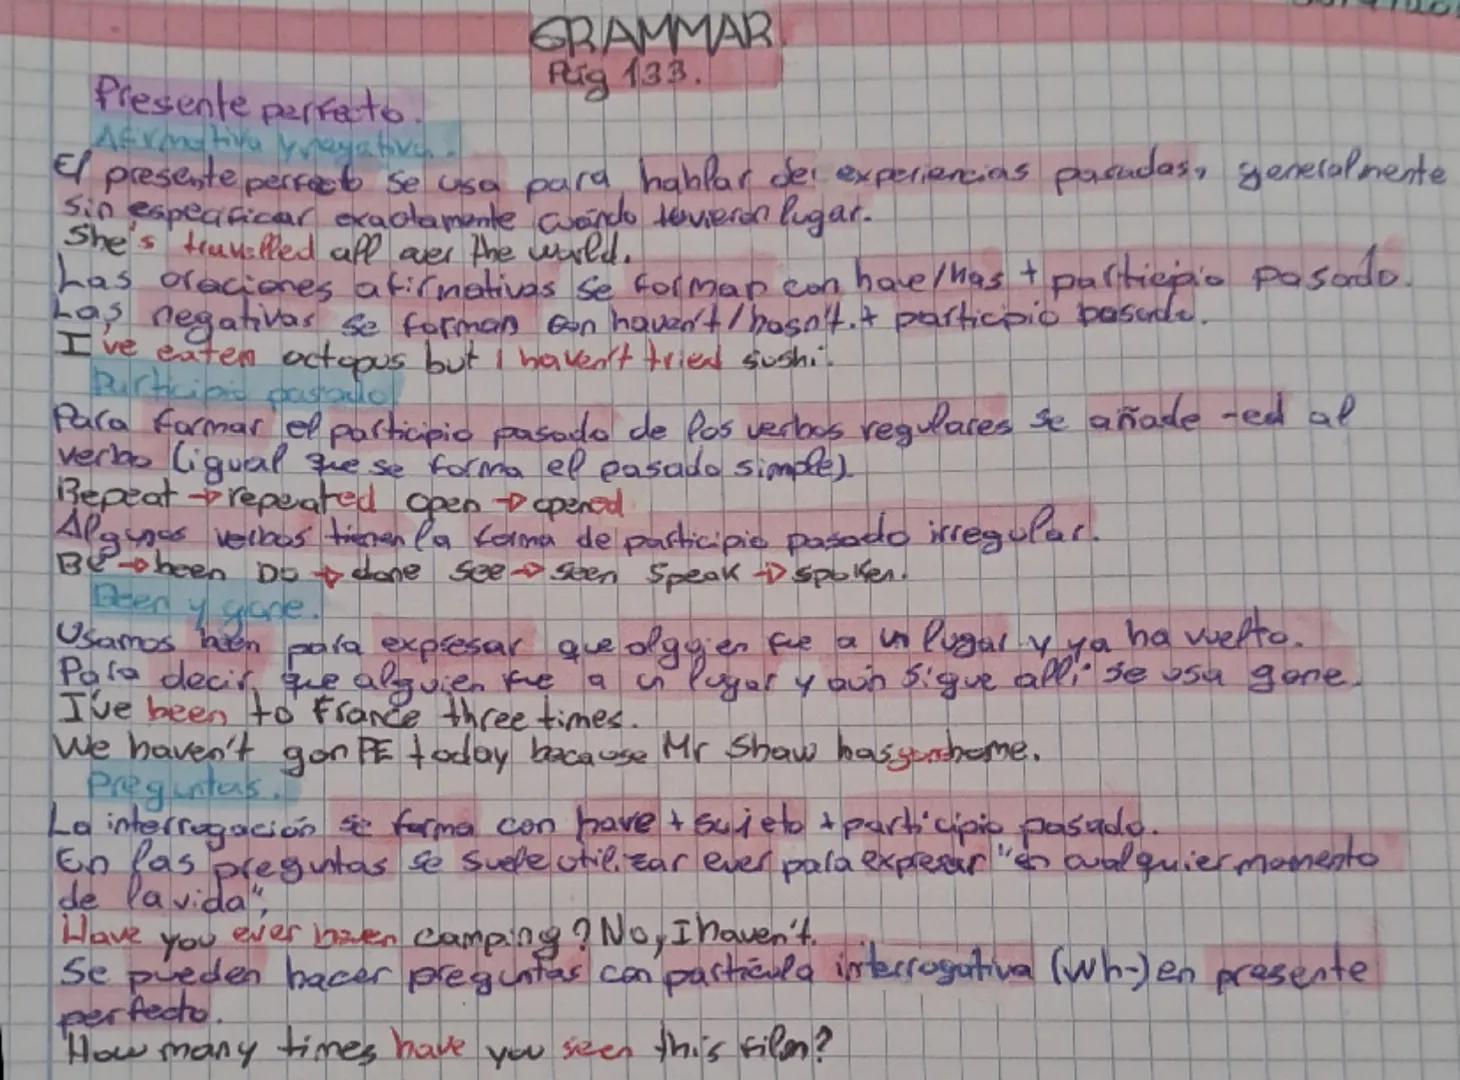 GRAMMAR
Pág 133.
Presente perfecto.
Afirmativa y negativa.
El presente perfecto se usa para hablar de experiencias pasadas, generalmente
sin especificar exactamente cuándo tuvieron lugar.
She's travelled all over the world.
Las oraciones afirmativas se forman con have/has + participio pasado.
Las negativas se forman con haven't/hasn't.+ participio pasado.
I've eaten octopus but I haven't tried sushi.
Participio pasado
Para formar el participio pasado de los verbos regulares se añade -ed al
verbo (igual que se forma el pasado simple)
Repeat → repeated open → opened
Algunos verbos tienen la forma de participio pasado irregular.
Be → been Do → done see → seen Speak → spoken.
Been y gone.
Usamos been para expresar que alguien fue a un lugar y ya ha vuelto.
Para decir que alguien fue a un lugar y aún sigue allí se usa gone.
I've been to France three times.
We haven't gon PE today because Mr Shaw has home.
Preguntas.
La interrogación se forma con have + sujeto + participio pasado.
En las preguntas se suele utilizar ever para expresar "en cualquier momento
de la vida",
Have you ever been camping? No, I haven't.
Se pueden hacer preguntas con partícula interrogativa (Wh-) en presente
perfecto.
How many times have you seen this film?